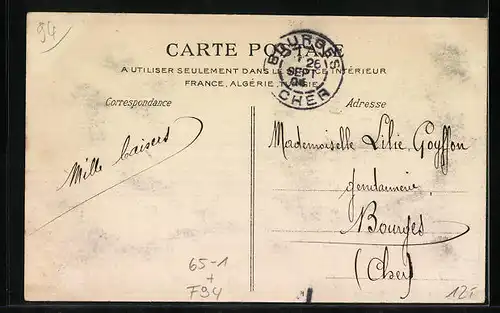 94
CARTE POSTALE
A UTILISER SEULEMENT DANS LE SERVICE INTÉRIEUR
FRANCE, ALGÉRIE, TUNISIE
BOURGES
26
SEPT
CHER
Correspondance
Adresse
Mille baisers
Mademoiselle Lilie Goyffon
gendarmerie
Bourges
(Cher)
65-1
+
F94